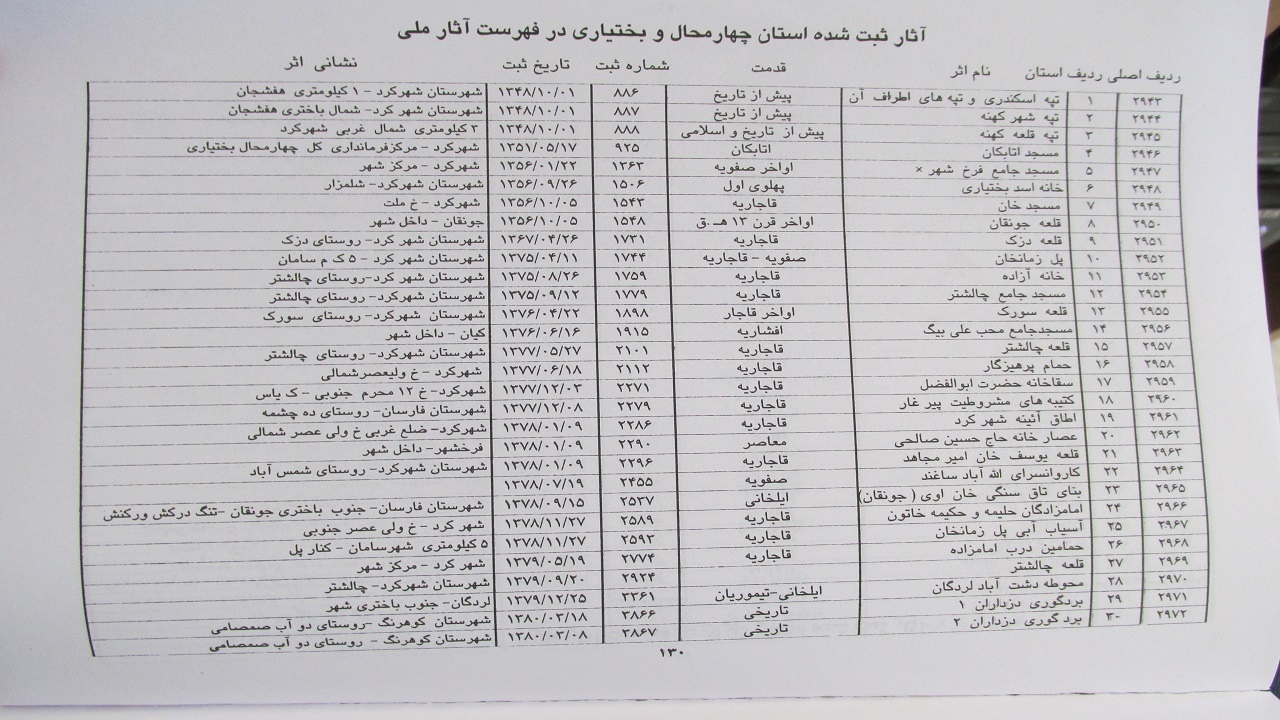 آثار ثبت شده استان چهارمحال و بختیاری در فهرست آثار ملی
ردیف اصلی ردیف استان نام اثر قدمت شماره ثبت تاریخ ثبت نشانی اثر
۲۹۴۳ ۱ تپه اسکندری و تپه های اطراف آن پیش از تاریخ ۸۸۶ ۱۳۴۸/۱۰/۰۱ شهرستان شهرکرد - ۱ کیلومتری هفشجان
۲۹۴۴ ۲ تپه شهر کهنه پیش از تاریخ ۸۸۷ ۱۳۴۸/۱۰/۰۱ شهرستان شهر کرد- شمال باختری هفشجان
۲۹۴۵ ۳ تپه قلعه کهنه پیش از تاریخ و اسلامی ۸۸۸ ۱۳۴۸/۱۰/۰۱ ۳ کیلومتری شمال غربی شهرکرد
۲۹۴۶ ۴ مسجد اتابکان اتابکان ۹۲۵ ۱۳۵۱/۰۵/۱۷ شهرکرد - مرکزفرمانداری کل چهارمحال بختیاری
۲۹۴۷ ۵ مسجد جامع فرخ شهر × اواخر صفویه ۱۳۶۳ ۱۳۵۶/۰۱/۲۲ شهرکرد - مرکز شهر
۲۹۴۸ ۶ خانه اسد بختیاری پهلوی اول ۱۵۰۶ ۱۳۵۶/۰۹/۲۶ شهرستان شهرکرد- شلمزار
۲۹۴۹ ۷ مسجد خان قاجاریه ۱۵۴۳ ۱۳۵۶/۱۰/۰۵ شهرکرد - خ ملت
۲۹۵۰ ۸ قلعه جونقان اواخر قرن ۱۳ هـ.ق ۱۵۴۸ ۱۳۵۶/۱۰/۰۵ جونقان - داخل شهر
۲۹۵۱ ۹ قلعه دزک قاجاریه ۱۷۳۱ ۱۳۶۷/۰۴/۲۶ شهرستان شهر کرد- روستای دزک
۲۹۵۲ ۱۰ پل زمانخان صفویه - قاجاریه ۱۷۴۴ ۱۳۷۵/۰۴/۱۱ شهرستان شهر کرد - ۵ ک م سامان
۲۹۵۳ ۱۱ خانه آزاده قاجاریه ۱۷۵۹ ۱۳۷۵/۰۸/۲۶ شهرستان شهر کرد-روستای چالشتر
۲۹۵۴ ۱۲ مسجد جامع چالشتر قاجاریه ۱۷۷۹ ۱۳۷۵/۰۹/۱۲ شهرستان شهر کرد- روستای چالشتر
۲۹۵۵ ۱۳ قلعه سورک اواخر قاجار ۱۸۹۸ ۱۳۷۶/۰۴/۲۲ شهرستان شهرکرد- روستای سورک
۲۹۵۶ ۱۴ مسجدجامع محب علی بیگ افشاریه ۱۹۱۵ ۱۳۷۶/۰۶/۱۶ کیان - داخل شهر
۲۹۵۷ ۱۵ قلعه چالشتر قاجاریه ۲۱۰۱ ۱۳۷۷/۰۵/۲۷ شهرستان شهر کرد- روستای چالشتر
۲۹۵۸ ۱۶ حمام پرهیزگار قاجاریه ۲۱۱۲ ۱۳۷۷/۰۶/۱۸ شهرکرد - خ ولیعصرشمالی
۲۹۵۹ ۱۷ سقاخانه حضرت ابوالفضل قاجاریه ۲۲۷۱ ۱۳۷۷/۱۲/۰۳ شهرکرد- خ ۱۲ محرم جنوبی - ک یاس
۲۹۶۰ ۱۸ کتیبه های مشروطیت پیر غار قاجاریه ۲۲۷۹ ۱۳۷۷/۱۲/۰۸ شهرستان فارسان- روستای ده چشمه
۲۹۶۱ ۱۹ اطاق آئینه شهر کرد قاجاریه ۲۲۸۶ ۱۳۷۸/۰۱/۰۹ شهرکرد- ضلع غربی خ ولی عصر شمالی
۲۹۶۲ ۲۰ عصار خانه حاج حسین صالحی معاصر ۲۲۹۰ ۱۳۷۸/۰۱/۰۹ فرخشهر- داخل شهر
۲۹۶۳ ۲۱ قلعه یوسف خان امیر مجاهد قاجاریه ۲۲۹۶ ۱۳۷۸/۰۱/۰۹ شهرستان شهرکرد- روستای شمس آباد
۲۹۶۴ ۲۲ کاروانسرای الله آباد ساغند صفویه ۲۴۵۵ ۱۳۷۸/۰۷/۱۹
۲۹۶۵ ۲۳ بنای تاق سنگی خان اوی ( جونقان) ایلخانی ۲۵۳۷ ۱۳۷۸/۰۹/۱۵ شهرستان فارسان- جنوب باختری جونقان -تنگ درکش ورکنش
۲۹۶۶ ۲۴ امامزادگان حلیمه و حکیمه خاتون قاجاریه ۲۵۸۹ ۱۳۷۸/۱۱/۲۷ شهر کرد - خ ولی عصر جنوبی
۲۹۶۷ ۲۵ آسیاب آبی پل زمانخان قاجاریه ۲۵۹۳ ۱۳۷۸/۱۱/۲۷ ۵ کیلومتری شهرسامان - کنار پل
۲۹۶۸ ۲۶ حمامین درب امامزاده قاجاریه ۲۷۷۴ ۱۳۷۹/۰۵/۱۹ شهر کرد - مرکز شهر
۲۹۶۹ ۲۷ قلعه چالشتر ۲۹۲۴ ۱۳۷۹/۰۹/۲۰ شهرستان شهرکرد- چالشتر
۲۹۷۰ ۲۸ محوطه دشت آباد لردگان ایلخانی-تیموریان ۳۳۶۱ ۱۳۷۹/۱۲/۲۵ لردگان- جنوب باختری شهر
۲۹۷۱ ۲۹ بردگوری دزداران ۱ تاریخی ۳۸۶۶ ۱۳۸۰/۰۳/۱۸ شهرستان کوهرنگ -روستای دو آب صمصامی
۲۹۷۲ ۳۰ برد گوری دزداران ۲ تاریخی ۳۸۶۷ ۱۳۸۰/۰۳/۰۸ شهرستان کوهرنگ - روستای دو آب صمصامی
۱۳۰